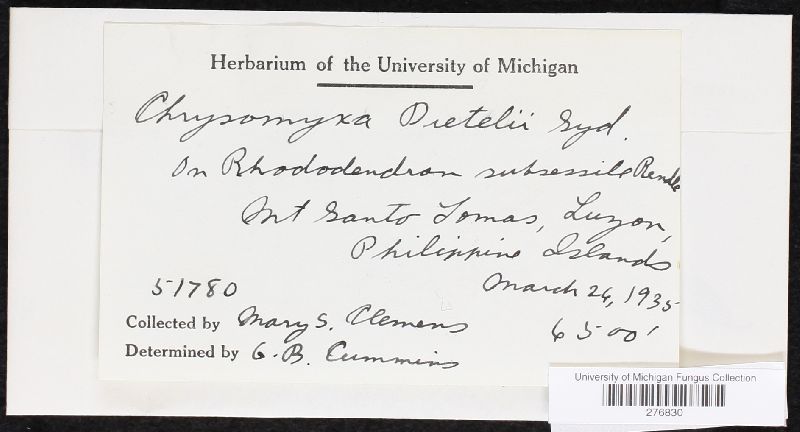 Herbarium of the University of Michigan
Chrysomyxa Dietelii Syd.
On Rhododendron subsessile Rendle
Mt Santo Tomas, Luzon,
Philippine Islands
March 26, 1935
51780
Collected by Mary S. Clemens 6500'
Determined by G. B. Cummins
University of Michigan Fungus Collection
276830